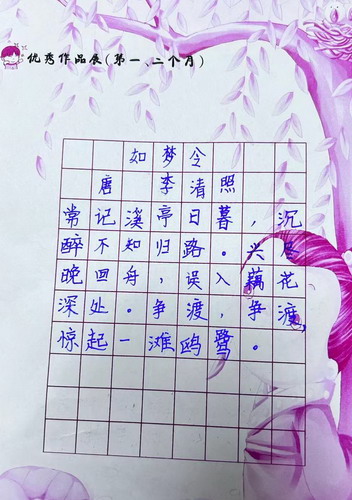 优秀作品展(第一、二个月)
如梦令
唐 李清照
常记溪亭日暮,沉
醉不知归路。兴尽
晚回舟,误入藕花
深处。争渡,争渡,
惊起一滩鸥鹭。